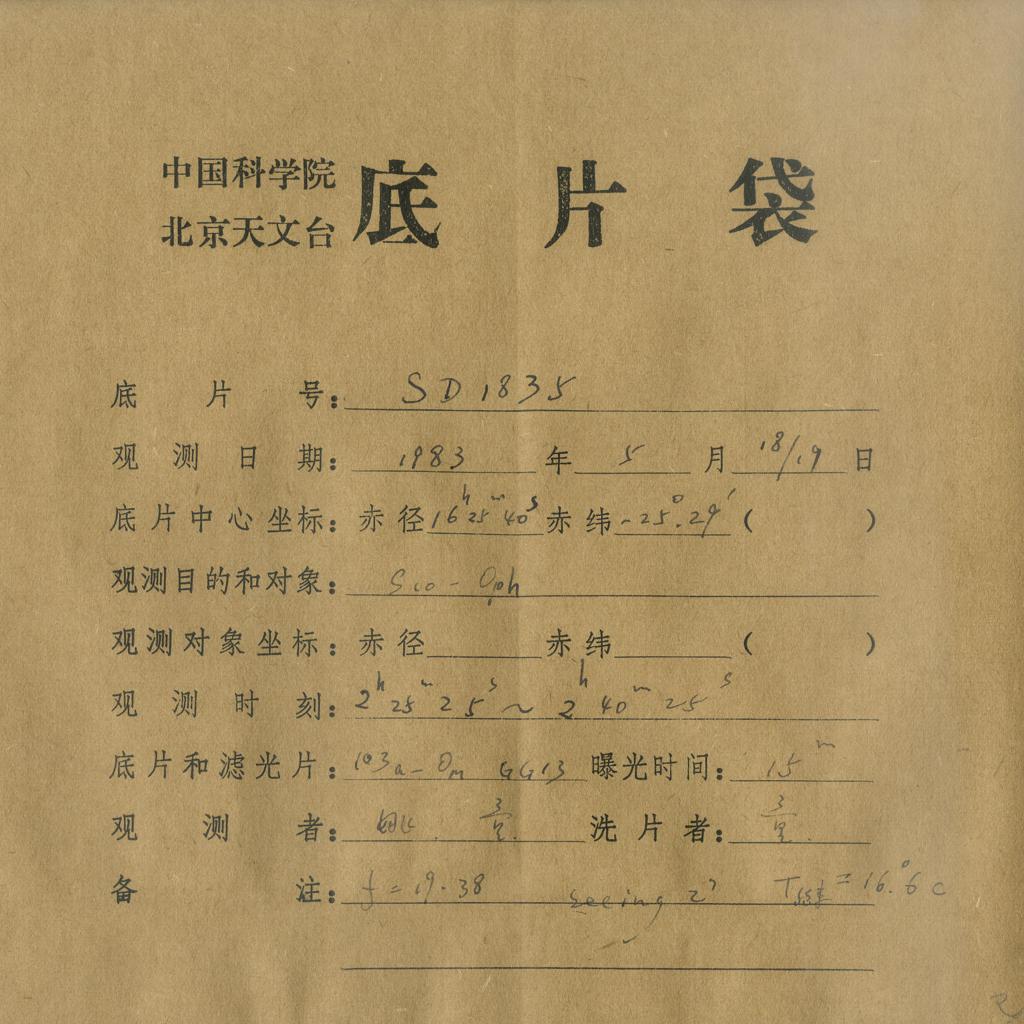 中国科学院
北京天文台 底片袋
底片号: SD1835
观测日期: 1983 年 5 月 18/19 日
底片中心坐标: 赤径 16h 25m 40s 赤纬 -25°.29′ ( )
观测目的和对象: Sco-Oph
观测对象坐标: 赤径 赤纬 ( )
观测时刻: 2h 25m 25s ~ 2h 40m 25s
底片和滤光片: 103a-Om GG13 曝光时间: 15m
观测者: 姚. 洗片者:
备注: f=19.38 seeing 2" T =16.°6 c